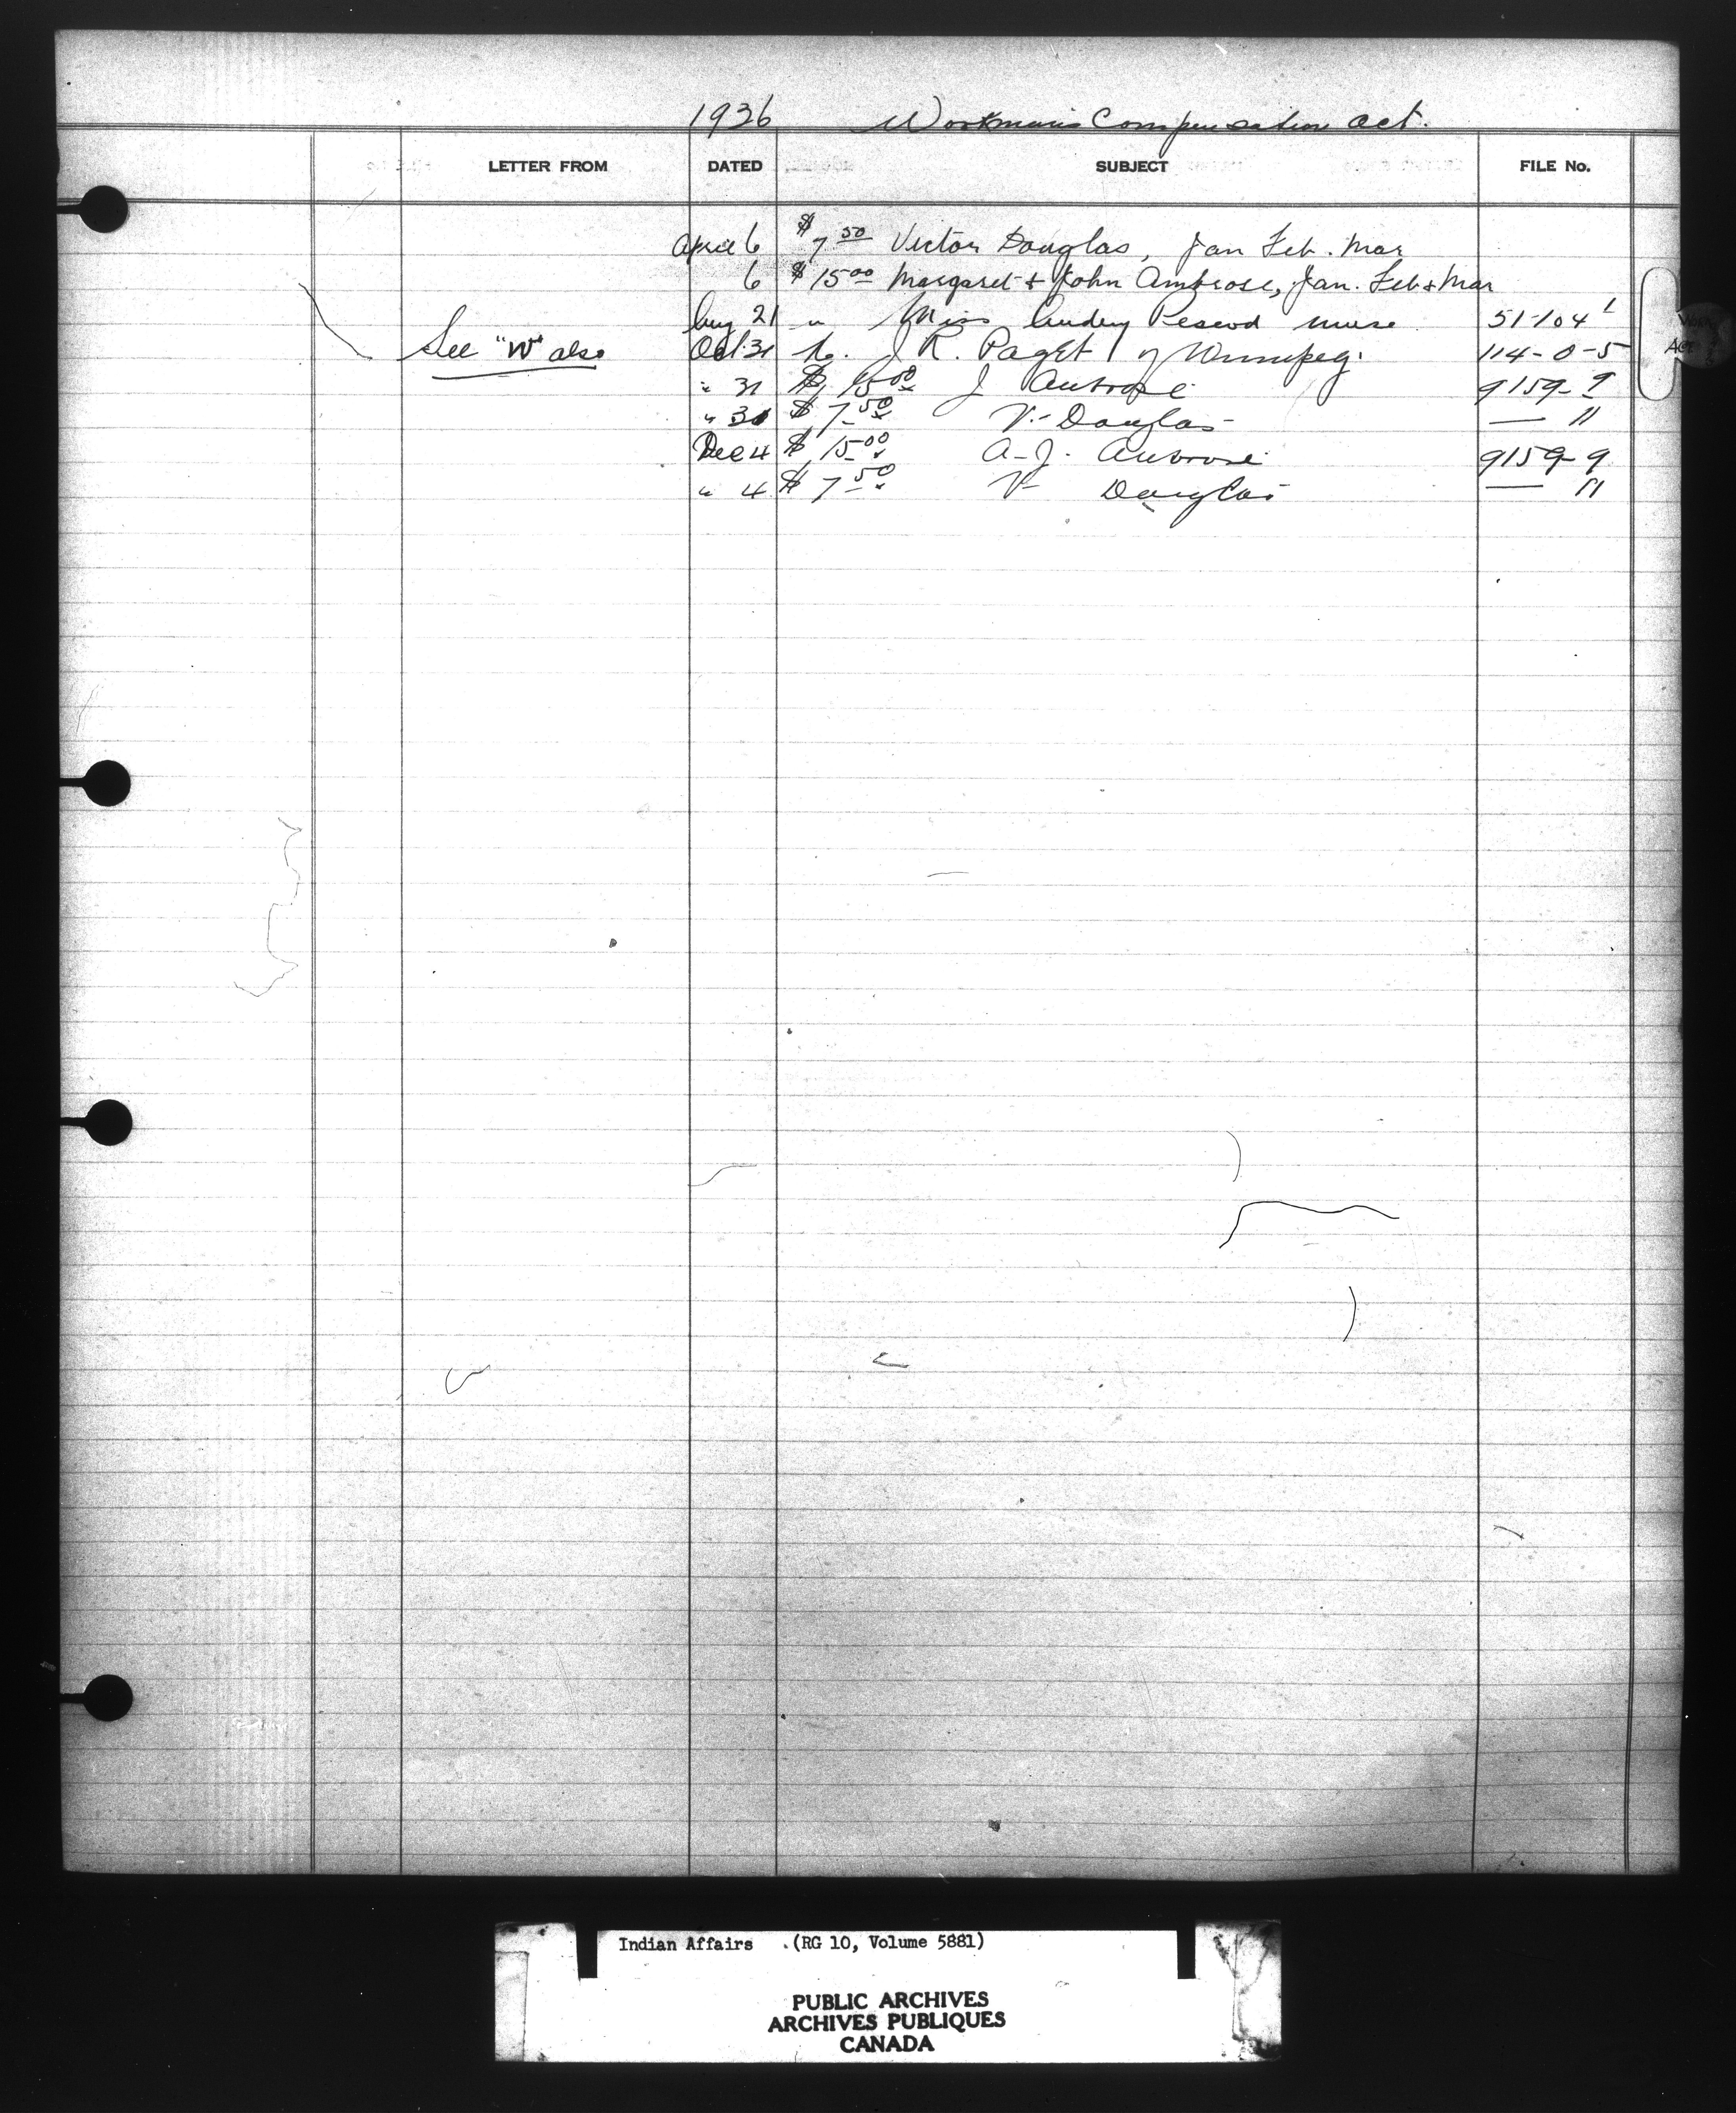 1936 Workman's Compensation Act.
LETTER FROM DATED SUBJECT FILE No.
April 6 $7 50 Victor Douglas, Jan Feb. Mar
6 $15 00 Margaret & John Ambrose, Jan. Feb & Mar
Aug 21 " Miss nurse 51-104 1
See "W" also Oct 31 J R. Paget of Winnipeg. 114-0-5
" 31 $15 00 J Ambrose 9159-9
" 31 $7 50 V. Douglas — "
Dec 4 $15 00 A-J. Ambrose 9159-9
" 4 $7 50 V- Douglas — "
Indian Affairs .(RG 10, Volume 5881)
PUBLIC ARCHIVES
ARCHIVES PUBLIQUES
CANADA